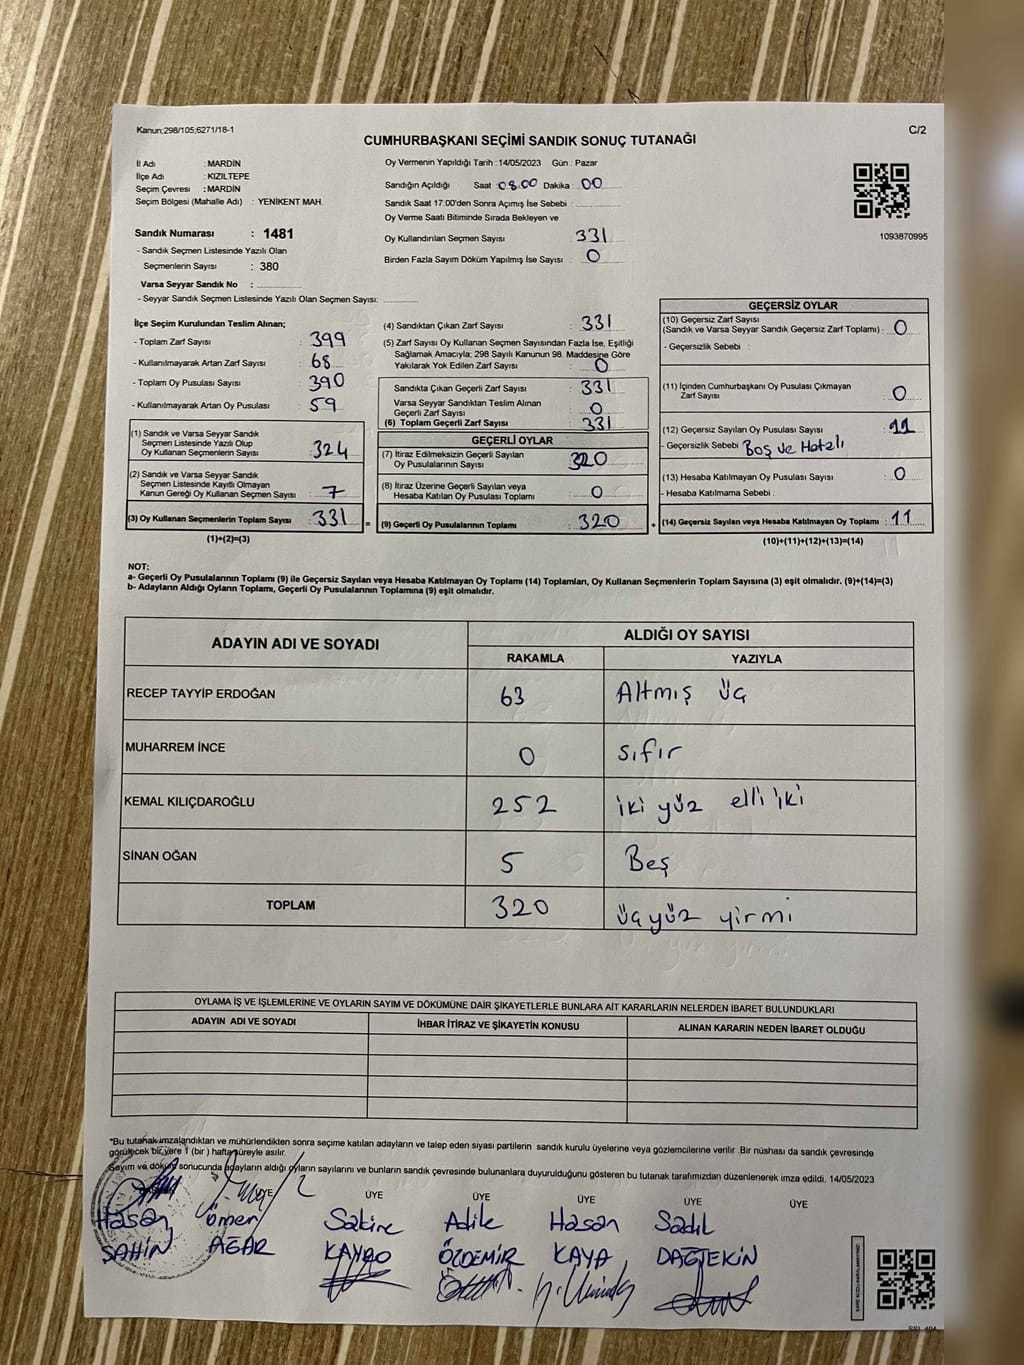 Kanun:298/105;6271/18-1
C/2
CUMHURBAŞKANI SEÇİMİ SANDIK SONUÇ TUTANAĞI
İl Adı : MARDİN
İlçe Adı : KIZILTEPE
Seçim Çevresi : MARDİN
Seçim Bölgesi (Mahalle Adı) : YENİKENT MAH.
Sandık Numarası : 1481
- Sandık Seçmen Listesinde Yazılı Olan
Seçmenlerin Sayısı : 380
Varsa Seyyar Sandık No :
- Seyyar Sandık Seçmen Listesinde Yazılı Olan Seçmen Sayısı:
Oy Vermenin Yapıldığı Tarih :14/05/2023 Gün : Pazar
Sandığın Açıldığı Saat :08:00 Dakika : 00
Sandık Saat 17:00'den Sonra Açımış İse Sebebi :
Oy Verme Saati Bitiminde Sırada Bekleyen ve
Oy Kullandırılan Seçmen Sayısı 331
Birden Fazla Sayım Döküm Yapılmış İse Sayısı : 0
1093870995
İlçe Seçim Kurulundan Teslim Alınan;
- Toplam Zarf Sayısı : 399
- Kullanılmayarak Artan Zarf Sayısı : 68
- Toplam Oy Pusulası Sayısı : 390
- Kullanılmayarak Artan Oy Pusulası : 59
(1) Sandık ve Varsa Seyyar Sandık
Seçmen Listesinde Yazılı Olup
Oy Kullanan Seçmenlerin Sayısı : 324
(2) Sandık ve Varsa Seyyar Sandık
Seçmen Listesinde Kayıtlı Olmayan
Kanun Gereği Oy Kullanan Seçmen Sayısı : 7
(3) Oy Kullanan Seçmenlerin Toplam Sayısı : 331 =
(1)+(2)=(3)
(4) Sandıktan Çıkan Zarf Sayısı : 331
(5) Zarf Sayısı Oy Kullanan Seçmen Sayısından Fazla İse, Eşitliği
Sağlamak Amacıyla; 298 Sayılı Kanunun 98. Maddesine Göre
Yakılarak Yok Edilen Zarf Sayısı : 0
Sandıkta Çıkan Geçerli Zarf Sayısı : 331
Varsa Seyyar Sandıktan Teslim Alınan
Geçerli Zarf Sayısı : 0
(6) Toplam Geçerli Zarf Sayısı : 331
GEÇERLİ OYLAR
(7) İtiraz Edilmeksizin Geçerli Sayılan
Oy Pusulalarının Sayısı : 320
(8) İtiraz Üzerine Geçerli Sayılan veya
Hesaba Katılan Oy Pusulası Toplamı : 0
(9) Geçerli Oy Pusulalarının Toplamı : 320 +
GEÇERSİZ OYLAR
(10) Geçersiz Zarf Sayısı
(Sandık ve Varsa Seyyar Sandık Geçersiz Zarf Toplamı) : 0
- Geçersizlik Sebebi :
(11) İçinden Cumhurbaşkanı Oy Pusulası Çıkmayan
Zarf Sayısı : 0
(12) Geçersiz Sayılan Oy Pusulası Sayısı : 11
- Geçersizlik Sebebi : Boş ve Hatalı
(13) Hesaba Katılmayan Oy Pusulası Sayısı : 0
- Hesaba Katılmama Sebebi :
(14) Geçersiz Sayılan veya Hesaba Katılmayan Oy Toplamı : 11
(10)+(11)+(12)+(13)=(14)
NOT:
a- Geçerli Oy Pusulalarının Toplamı (9) ile Geçersiz Sayılan veya Hesaba Katılmayan Oy Toplamı (14) Toplamları, Oy Kullanan Seçmenlerin Toplam Sayısına (3) eşit olmalıdır. (9)+(14)=(3)
b- Adayların Aldığı Oyların Toplamı, Geçerli Oy Pusulalarının Toplamına (9) eşit olmalıdır.
ADAYIN ADI VE SOYADI ALDIĞI OY SAYISI
RAKAMLA YAZIYLA
RECEP TAYYİP ERDOĞAN 63 Altmış üç
MUHARREM İNCE 0 sıfır
KEMAL KILIÇDAROĞLU 252 iki yüz elli iki
SİNAN OĞAN 5 Beş
TOPLAM 320 üçyüz yirmi
OYLAMA İŞ VE İŞLEMLERİNE VE OYLARIN SAYIM VE DÖKÜMÜNE DAİR ŞİKAYETLERLE BUNLARA AİT KARARLARIN NELERDEN İBARET BULUNDUKLARI
ADAYIN ADI VE SOYADI İHBAR İTİRAZ VE ŞİKAYETİN KONUSU ALINAN KARARIN NEDEN İBARET OLDUĞU
*Bu tutanak imzalandıktan ve mühürlendikten sonra seçime katılan adayların ve talep eden siyasi partilerin sandık kurulu üyelerine veya gözlemcilerine verilir .Bir nüshası da sandık çevresinde
görülecek bir yere 1 (bir ) hafta süreyle asılır.
Sayım ve döküm sonucunda adayların aldığı oyların sayılarını ve bunların sandık çevresinde bulunanlara duyurulduğunu gösteren bu tutanak tarafımızdan düzenlenerek imza edildi. 14/05/2023
ÜYE ÜYE ÜYE ÜYE ÜYE ÜYE
Hasan Ömer Sakine Adile Hasan Sadık
ŞAHİN AĞAR ÖZDEMİR KAYA DAĞTEKİN